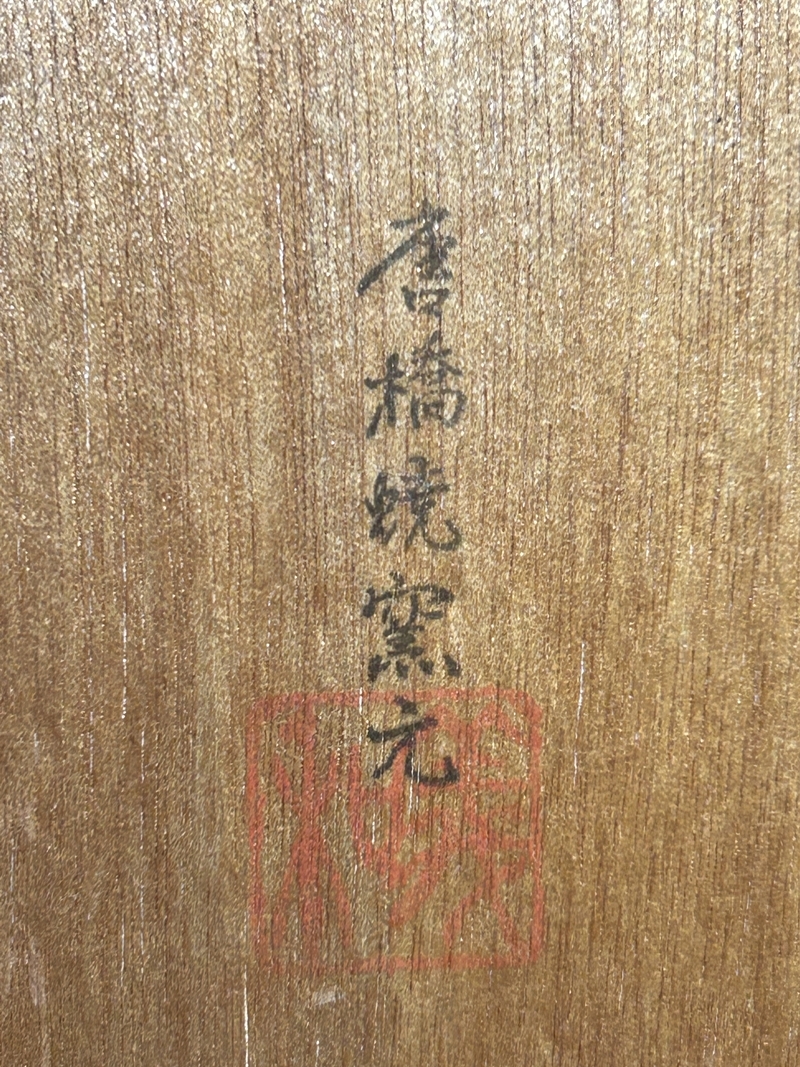 唐橋焼窯元